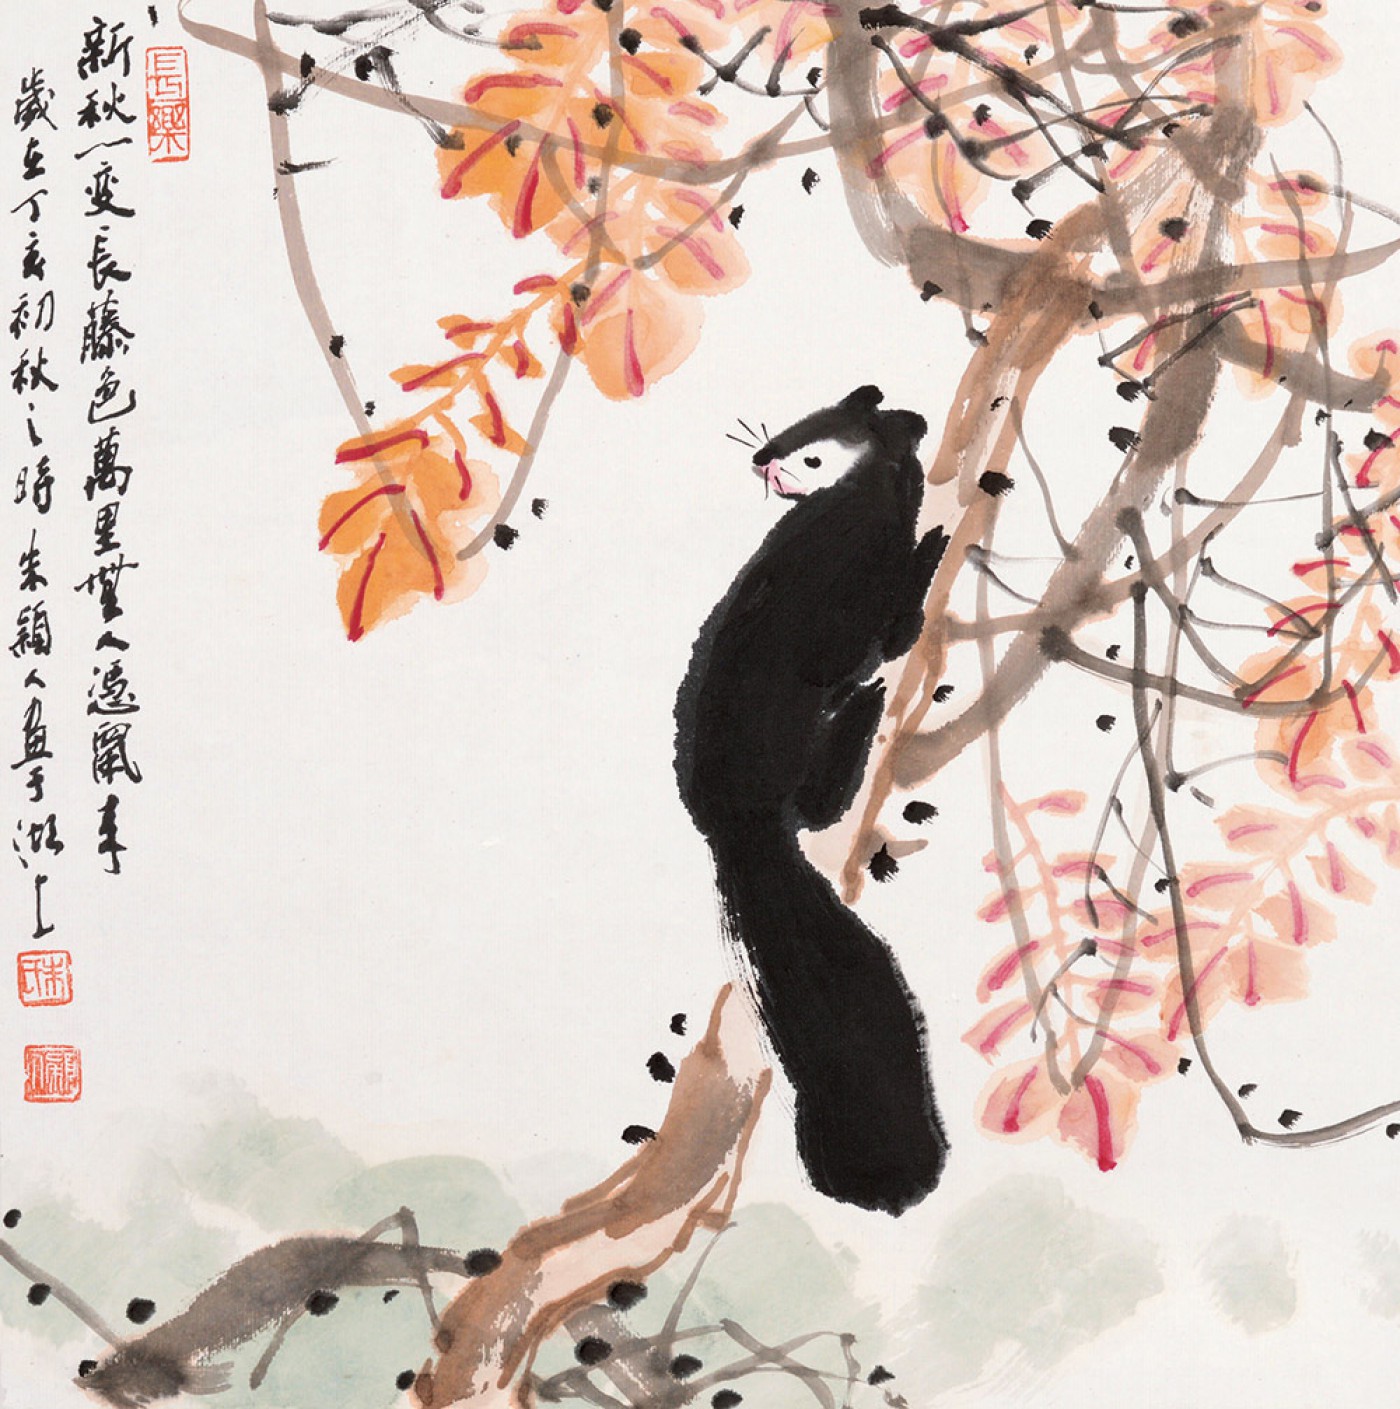 新秋一變長藤色萬里無人憑鼠來
歲在丁亥初秋之時朱穎人畫于湖上
長樂
朱